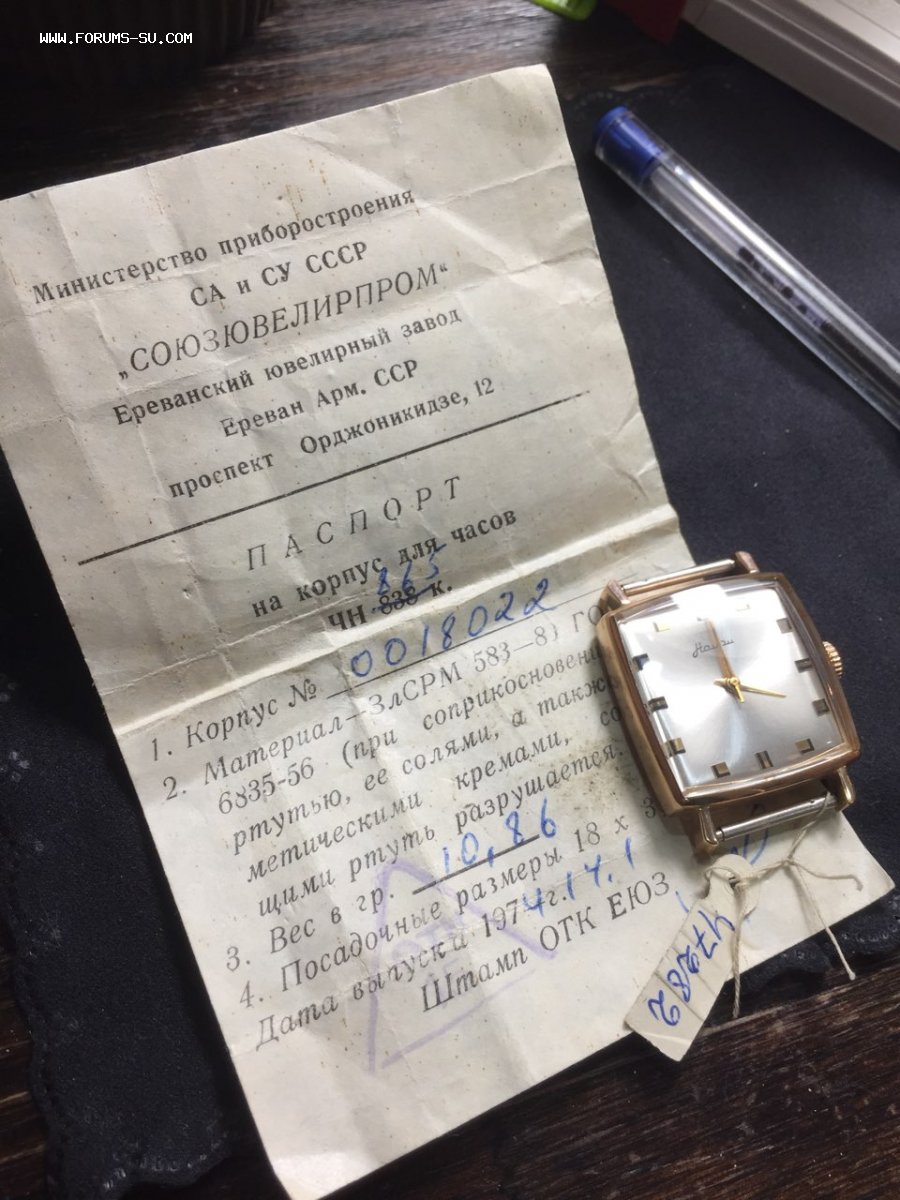 WWW.FORUMS-SU.COM
Министерство приборостроения
СА и СУ СССР
„СОЮЗЮВЕЛИРПРОМ“
Ереванский ювелирный завод
Ереван Арм. ССР
проспект Орджоникидзе, 12
ПАСПОРТ
на корпус для часов
865
ЧН 838 к.
1. Корпус № 0018022
2. Материал—ЗлСРМ 583—8) ГО
6835-56 (при соприкосновени
ртутью, ее солями, а такж
метическими кремами, со
щими ртуть разрушается.
3. Вес в гр. 10,86
4. Посадочные размеры 18 х 3
Дата выпуска 1974 г. 14.1
Штамп ОТК ЕЮЗ
ОТК
Наири
47282